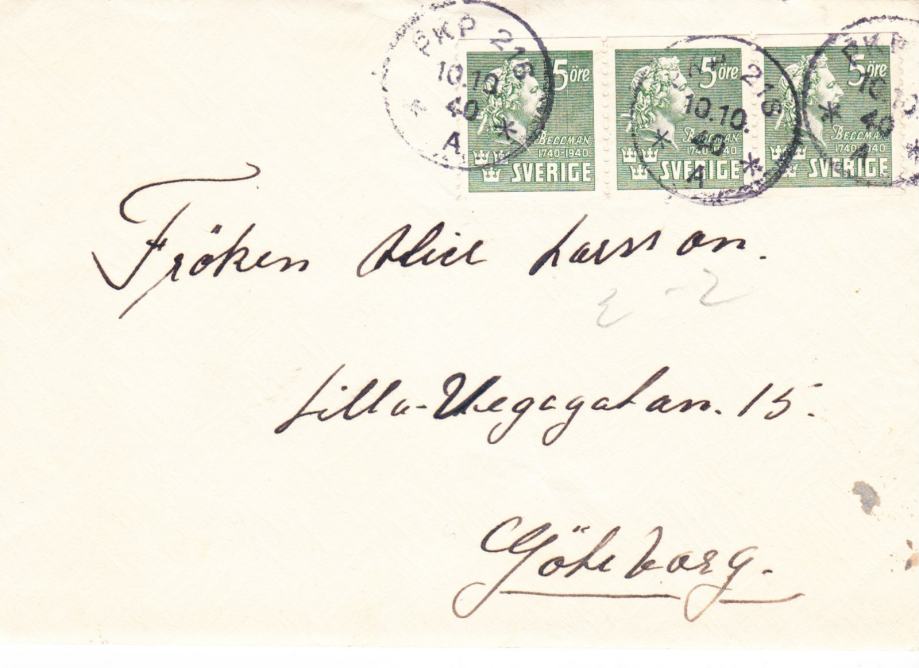 PKP 216
10.10.
40
A
5 öre
BELLMAN
1740-1940
SVERIGE
KP 216
10.10.
40
A
5 öre
BELLMAN
1740-1940
SVERIGE
PKP
10.10
40
A
5 öre
BELLMAN
1740-1940
SVERIGE
Fröken Alice Larsson.
2-2
Lilla-Vegagatan. 15.
Göteborg.